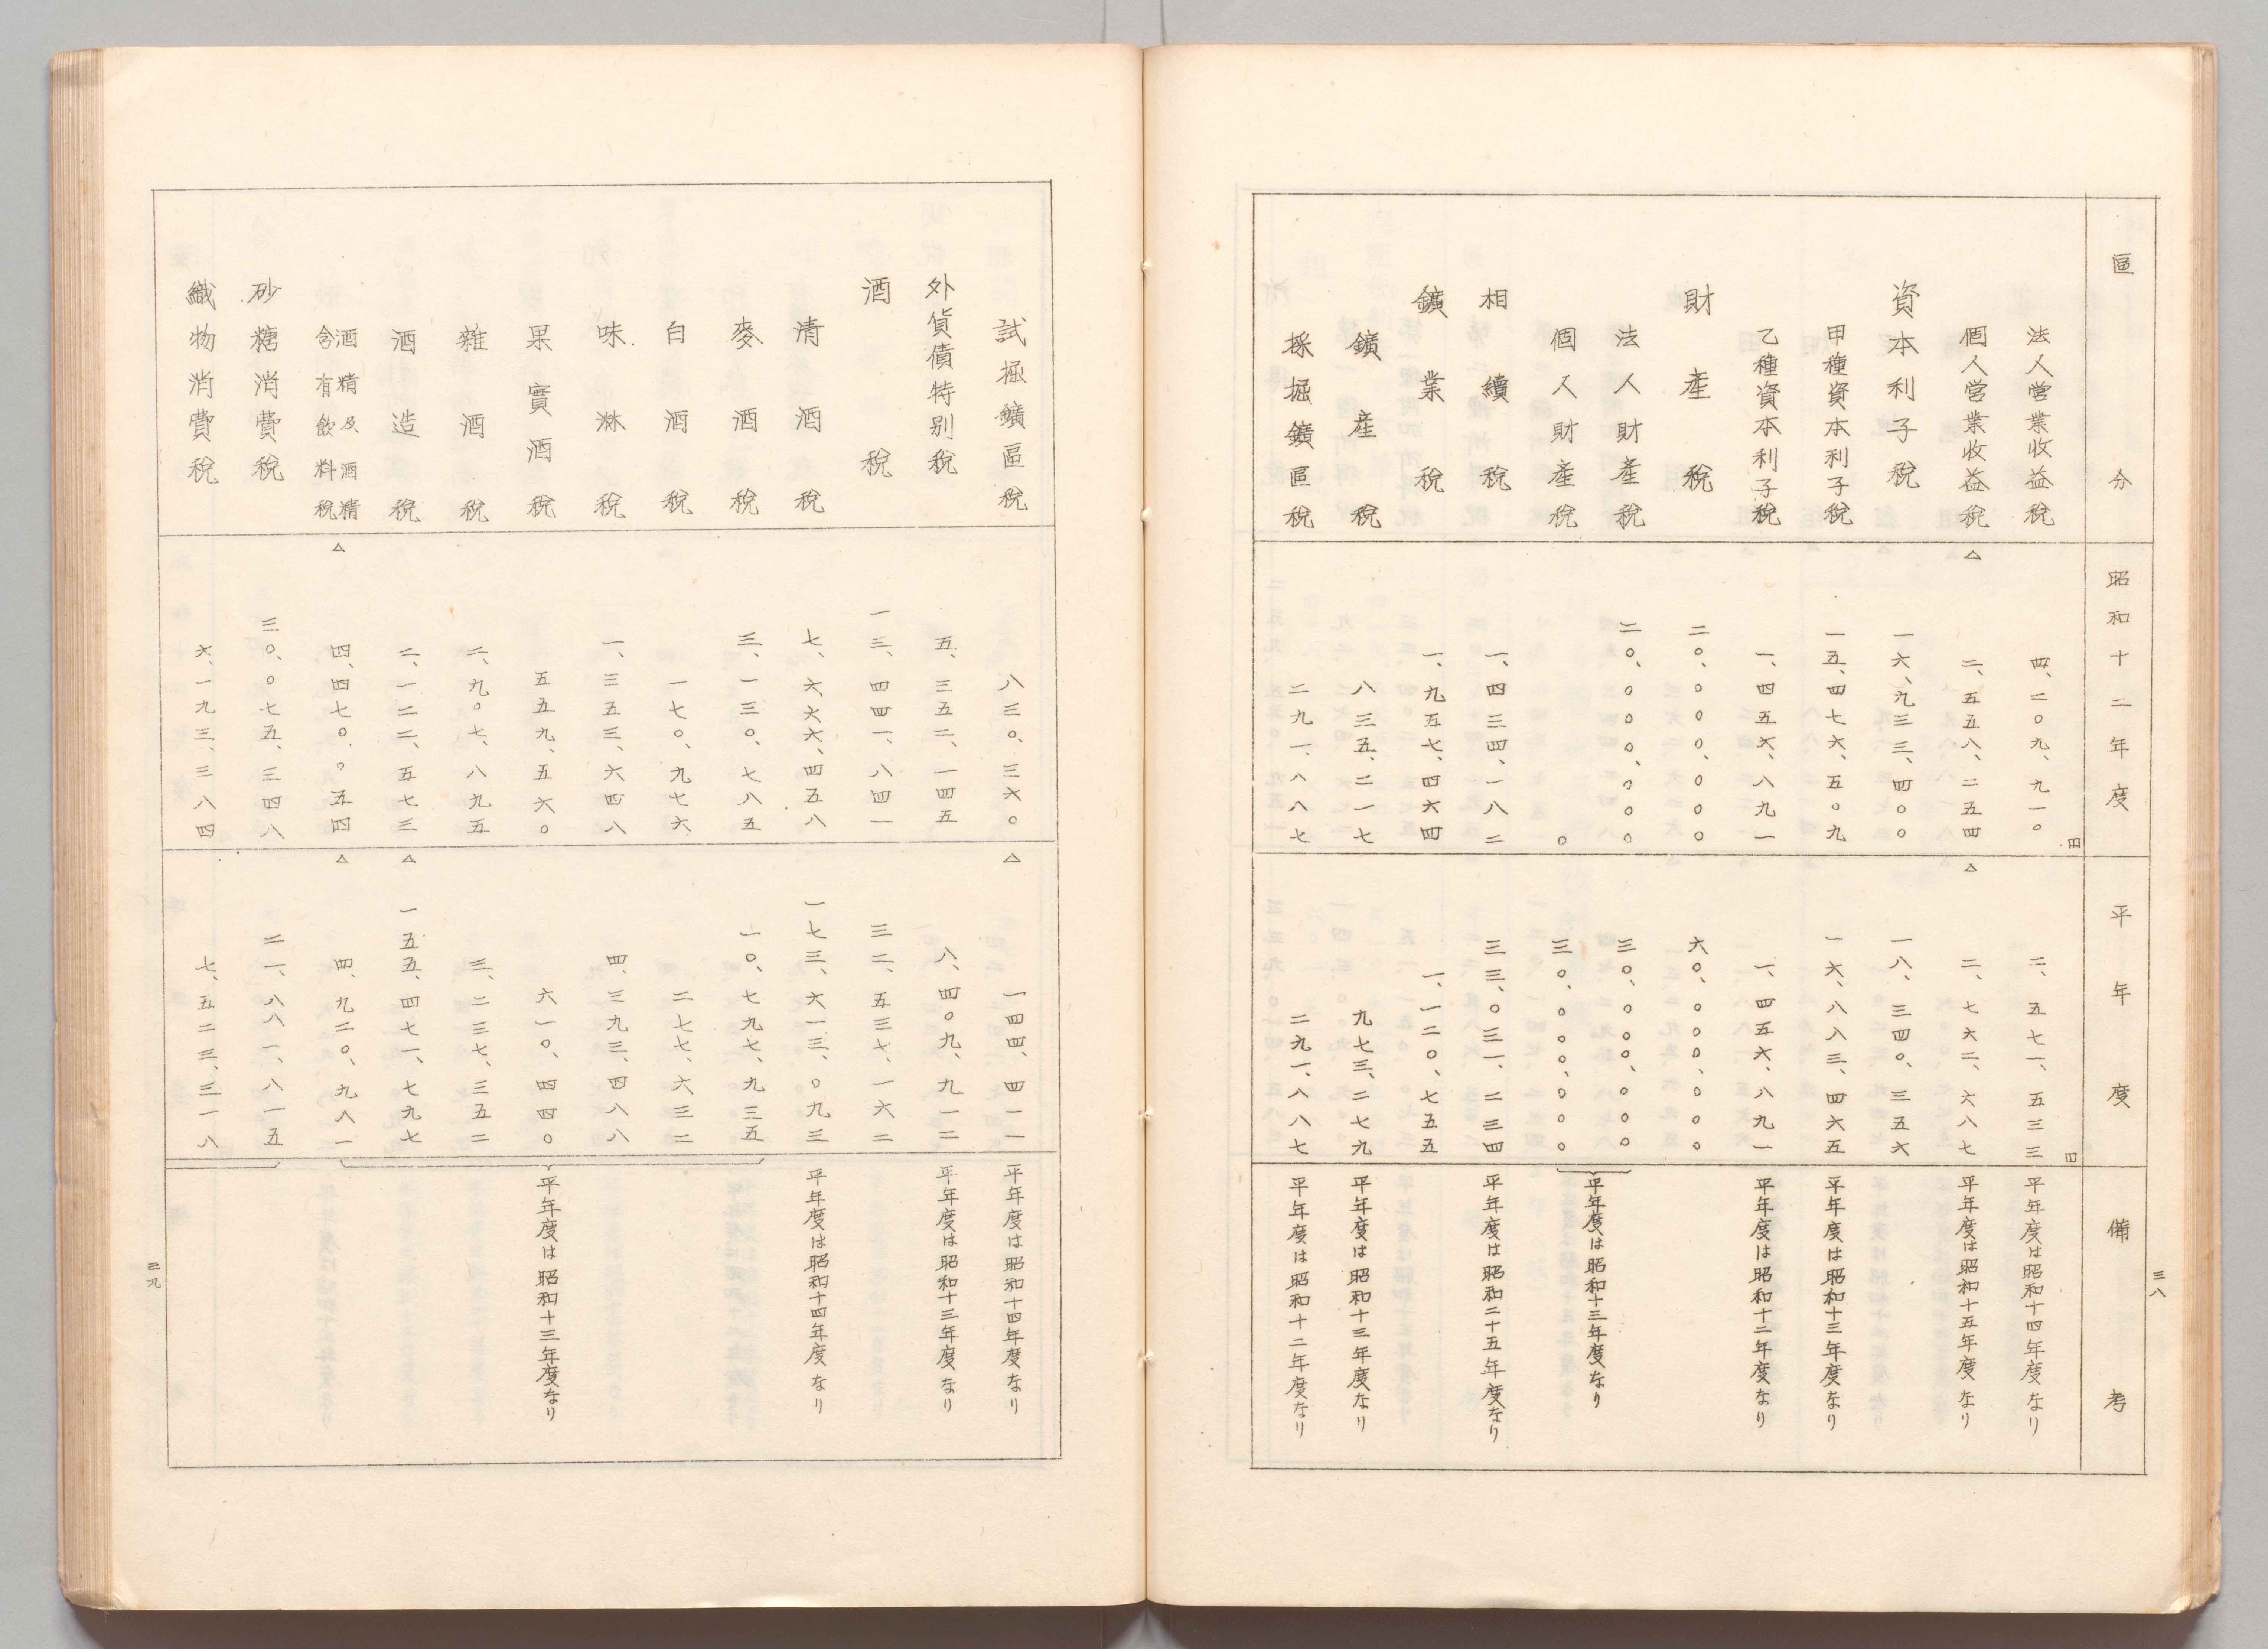 三八
區分 昭和十二年度 平年度 備考
円 円
法人営業收益税 四、二〇九、九一〇 二、五七一、五三三 平年度は昭和十四年度なり
個人営業收益税 △二、五五八、二五四 △二、七六二、六八七 平年度は昭和十五年度なり
資本利子税 一六、九三三、四〇〇 一八、三四〇、三五六
甲種資本利子税 一五、四七六、五〇九 一六、八八三、四六五 平年度は昭和十三年度なり
乙種資本利子税 一、四五六、八九一 一、四五六、八九一 平年度は昭和十二年度なり
財産税 二〇、〇〇〇、〇〇〇 六〇、〇〇〇、〇〇〇
法人財産税 二〇、〇〇〇、〇〇〇 三〇、〇〇〇、〇〇〇
個人財産税 〇 三〇、〇〇〇、〇〇〇
平年度は昭和十三年度なり
相續税 一、四三四、一八二 三三、〇三一、二三四 平年度は昭和二十五年度なり
鑛業税 一、九五七、四六四 一、一二〇、七五五
鑛産税 八三五、二一七 九七三、二七九 平年度は昭和十三年度なり
採掘鑛區税 二九一、八八七 二九一、八八七 平年度は昭和十二年度なり
試掘鑛區税 八三〇、三六〇 △一四四、四一一 平年度は昭和十四年度なり
外貨債特別税 五、三五二、一四五 八、四〇九、九一二 平年度は昭和十三年度なり
酒税 一三、四四一、八四一 三二、五三七、一六二
清酒税 七、六六六、四五八 一七三、六一三、〇九三 平年度は昭和十四年度なり
麥酒税 三、一三〇、七八五 一〇、七九七、九三五
白酒税 一七〇、九七六 二七七、六三二
味淋税 一、三五三、六四八 四、三九三、四八八
果實酒税 五五九、五六〇 六一〇、四四〇 平年度は昭和十三年度なり
雜酒税 二、九〇七、八九五 三、二三七、三五二
酒造税 二、一二二、五七三 △一五五、四七一、七九七
酒精及酒精含有飲料税 △四、四七〇、〇五四 △四、九二〇、九八一
砂糖消費税 三〇、〇七五、三四八 二一、八八一、八一五
織物消費税 六、一九三、三八四 七、五二三、三一八
三九